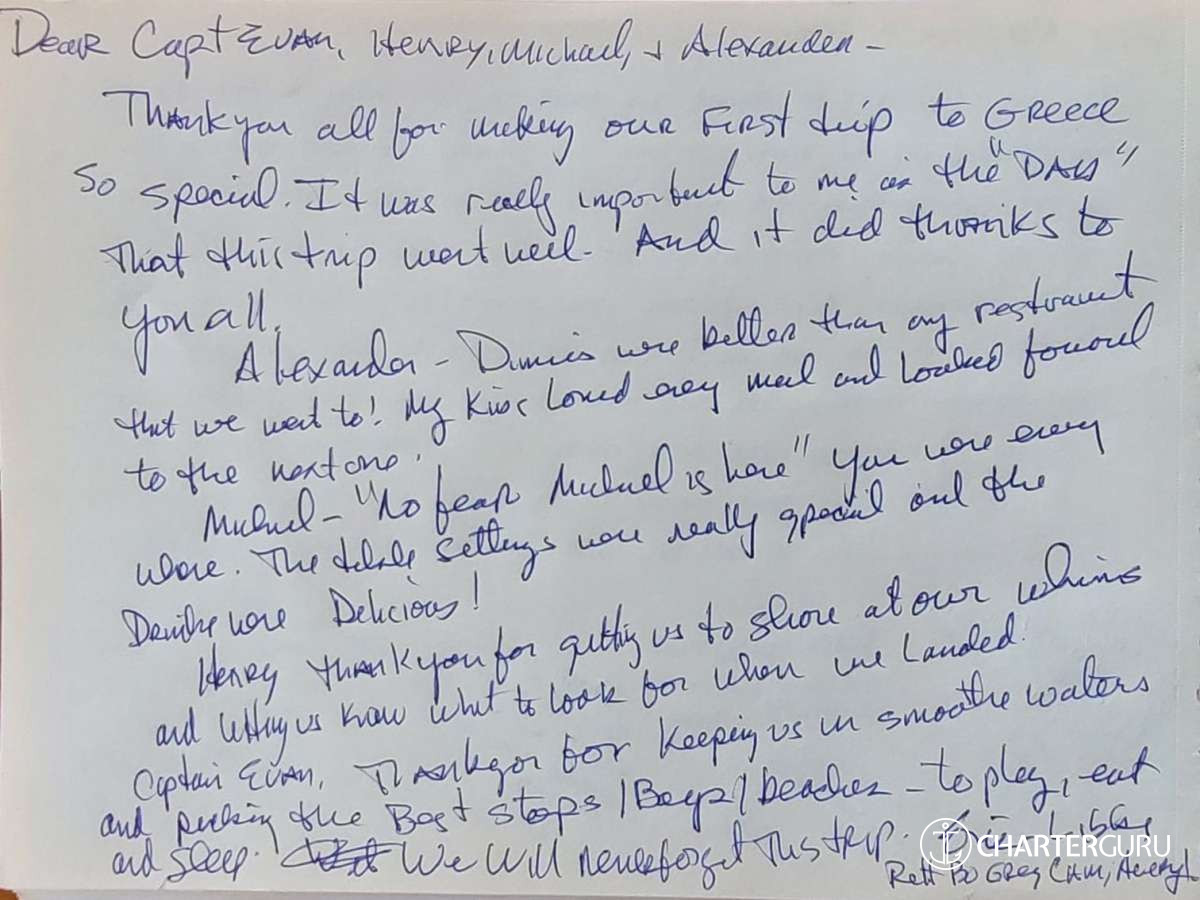 Dear Capt Evan, Henry, Michael, + Alexander -
Thank you all for making our First trip to Greece
so special. It was really important to me as the "DAD"
That this trip went well. And it did thanks to
you all.
Alexander - Dinners were better than any restraunt
that we went to! My Kids Loved every meal and Looked forward
to the next one.
Michael - "No fear Michael is here" You were every
where. The table settings were really special and the
Drinks were Delicious!
Henry thank you for getting us to shore at our whims
and letting us know what to look for when we Landed.
Captain Evan, Thank you for keeping us in smoothe waters
and picking the Best stops / Bays / beaches - to play, eat
and sleep. We Will never forget This trip.
CHARTERGURU
Rett Bo Greg Cam, Avery